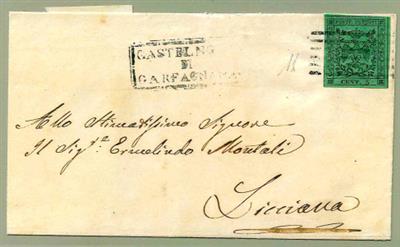 CASTELNO
DI
GARFAGNANA
CENT. 5
Allo Stimatissimo Signore
Il Sig.re Ermelindo Montali
Licciana